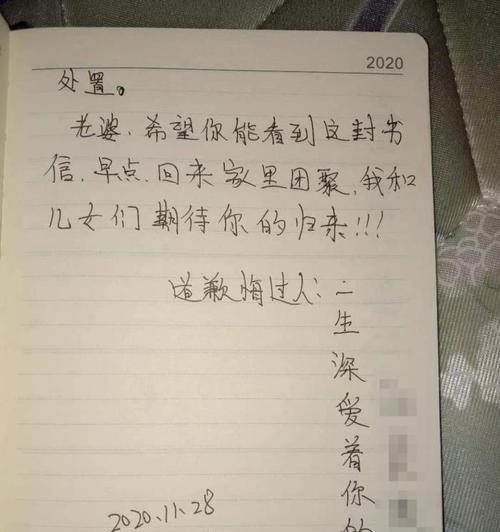 2020
处置。
老婆.希望你能看到这封书
信.早点.回来家里团聚.我和
儿女们期待你的归来!!!
道歉悔过人:一
生
深
爱
着
你
的
2020.11.28